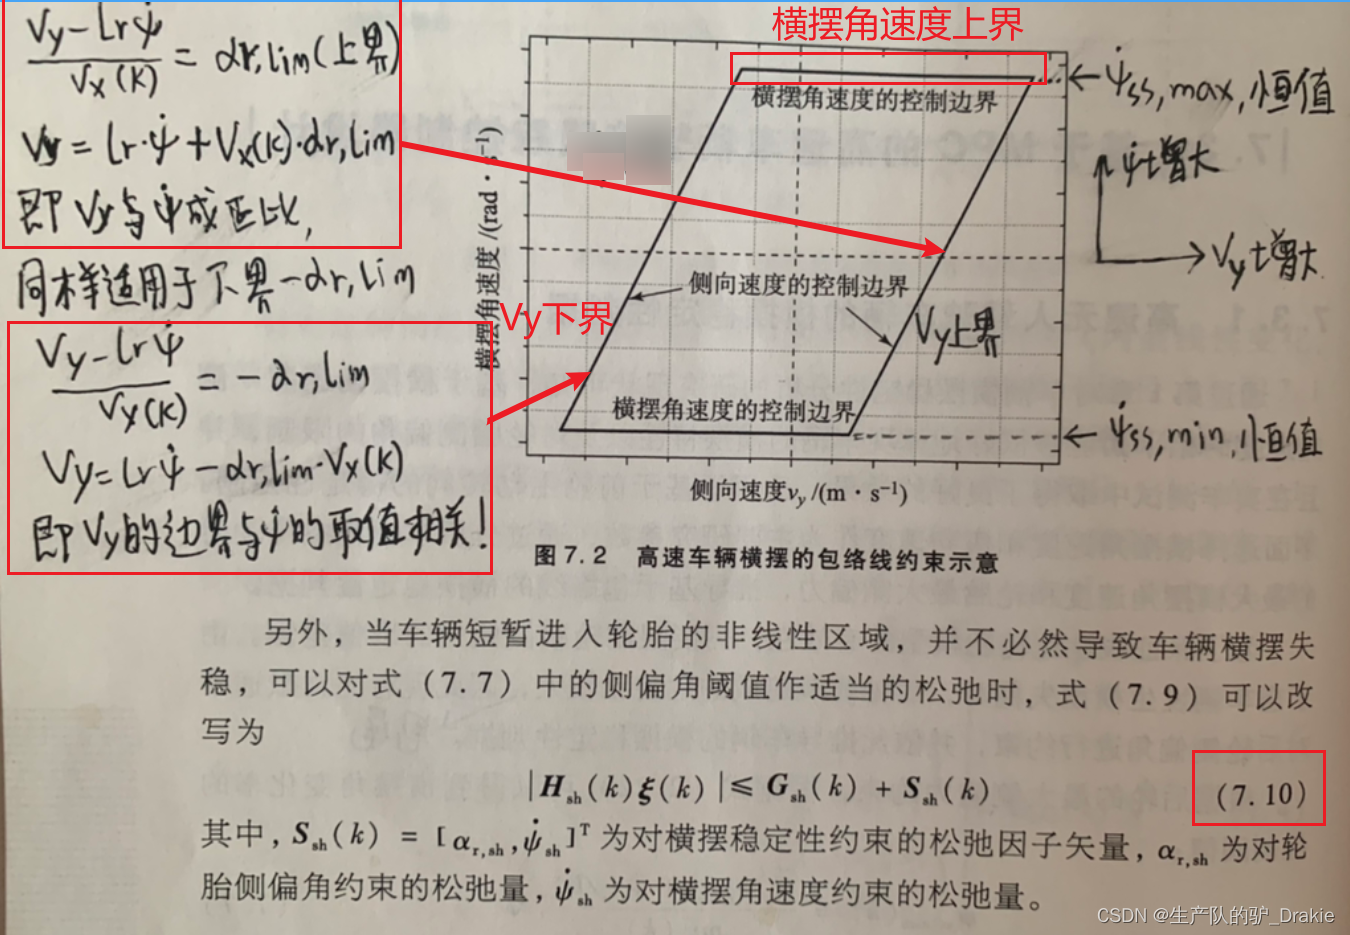 横摆角速度上界
Vy-Lrψ̇
Vx(K)
= αr,lim(上界)
Vy = Lr·ψ̇ + Vx(K)·αr,lim
即 Vy与ψ̇成正比,
同样适用于下界-αr,lim
Vy下界
Vy-Lrψ̇
Vx(K)
= - αr,lim
Vy=Lrψ̇ - αr,lim·Vx(K)
即Vy的边界与ψ̇的取值相关!
ψ̇ss,max,恒值
横摆角速度的控制边界
横摆角速度/(rad·s⁻¹)
ψ̇↑增大
Vy↑增大
侧向速度的控制边界
Vy上界
横摆角速度的控制边界
ψ̇ss,min.恒值
侧向速度vy/(m·s⁻¹)
图7.2 高速车辆横摆的包络线约束示意
另外，当车辆短暂进入轮胎的非线性区域，并不必然导致车辆横摆失
稳，可以对式（7.7）中的侧偏角阈值作适当的松弛时，式（7.9）可以改
写为
|Hsh(k)ξ(k)|≤Gsh(k)+Ssh(k) (7.10)
其中，Ssh(k)=[αr,sh,ψ̇sh]ᵀ为对横摆稳定性约束的松弛因子矢量，αr,sh为对轮
胎侧偏角约束的松弛量，ψ̇sh为对横摆角速度约束的松弛量。
CSDN @生产队的驴_Drakie